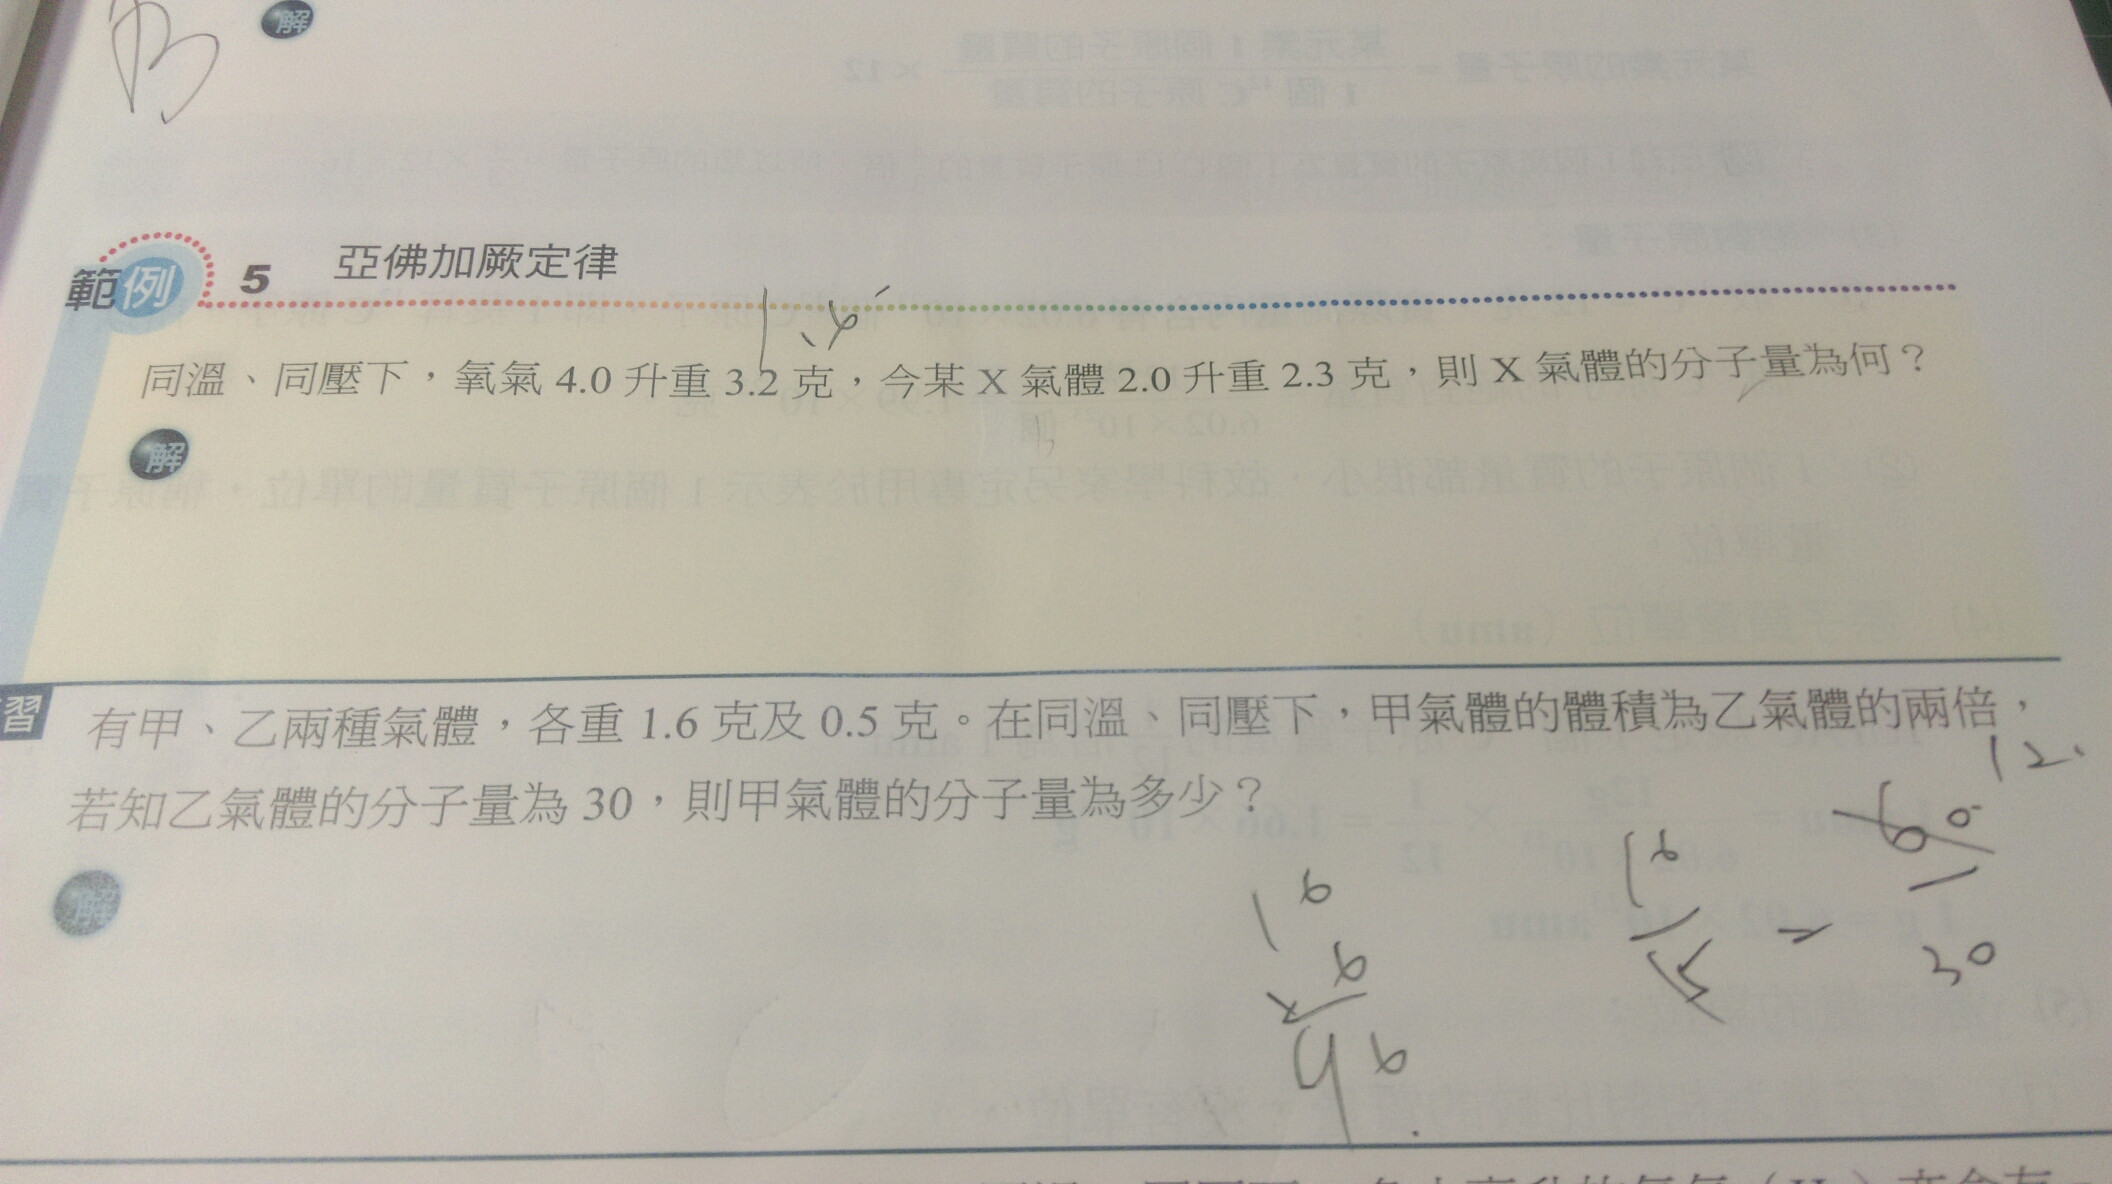 解
範例 5 亞佛加厥定律
1.6
同溫、同壓下，氧氣 4.0 升重 3.2 克，今某 X 氣體 2.0 升重 2.3 克，則 X 氣體的分子量為何？
解
習 有甲、乙兩種氣體，各重 1.6 克及 0.5 克。在同溫、同壓下，甲氣體的體積為乙氣體的兩倍，
若知乙氣體的分子量為 30，則甲氣體的分子量為多少？
解
12
60
16
5
=
30
16
6
96